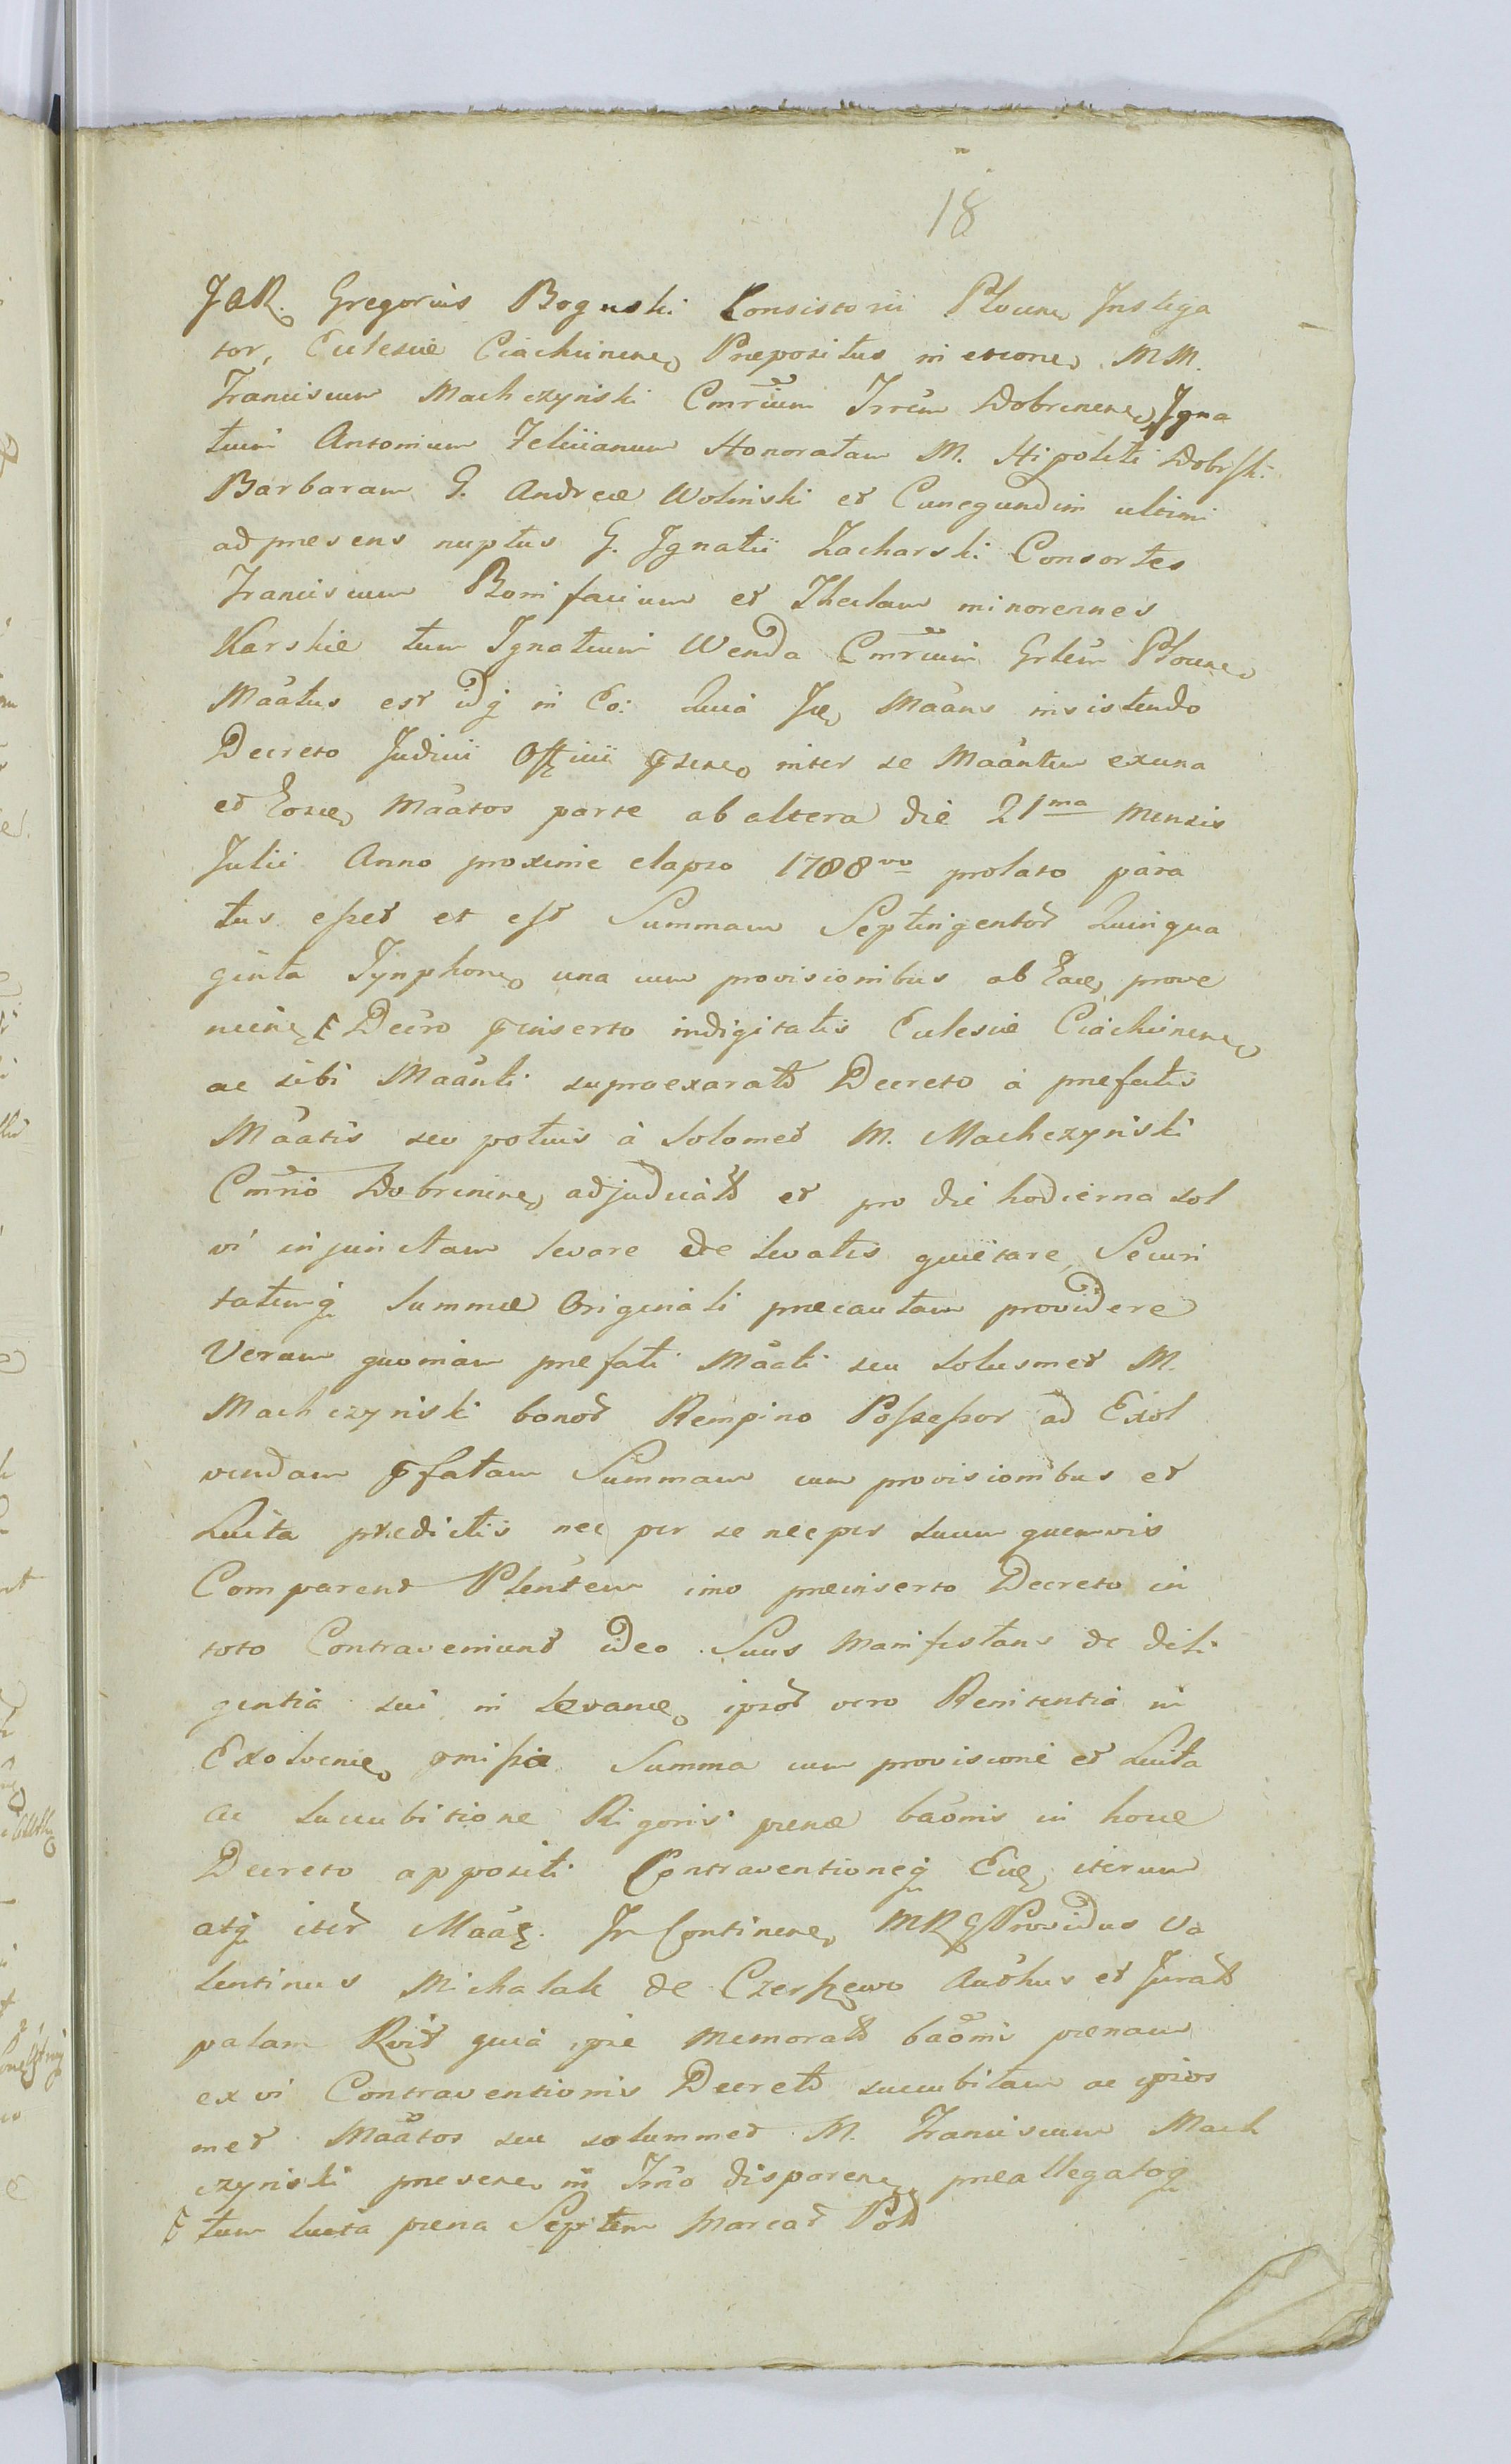 18
JAR. Gregorius Boguski Consistorii Plocen Instiga
tor, Eclesiæ Ciachcinen Præpositus in MM.
Franciscum Machczynski Cmrium Trrem Dobrinen, Igna
tium Antonium Felicianum Honoratam M. Hipoliti Dobrski
Barbaram G. Andreæ Wolinski et Cunegundim ultimi
ad presens nuptus G. Ignatii Zacharski Consortes
Franciscum Bonifacium et Theclam minorennes
Karskie tum Ignatium Wenda Cmrium Grlem Plocen
Maatus est idq in Eo: Quia Ize Maans insistendo
Decreto Judicii Officii inter se Maantem ex una
et Eosce Maatos parte ab altera die 21ma Mensis
Julii Anno proxime elapso 1788vo prolato para
tus esset et est Summam Septingentor Quinqua
ginta Tynphon una cum provisionibus ab Eae prove
nien Decro inserto indigitatis Eclesiæ Ciachcinen
ac sibi Maanti supraexarato Decreto à prefatis
Maatis seu potius à Solomet M. Machczynski
Cmrio Dobrinen adjudicat et pro die hodierna sol
vi injunctam levare de levatis quietare Securi
tatemq Summæ Originali præcautam providere
Verum quoniam prefati Maati seu Solusmet M.
Machczynski bonor Rempino Possessor ad Exol
vendam pfatam Summam cum provisionibus et
Lucta prædictis nec per se nec per suum quemvis
Comparent Plentem imo præinserto Decreto in
toto Contraveniunt ideo Suus Manifestans de dili
gentia sui in Levane ipsor vero Renitentia in
Exolvene pmissa Summa cum provisione et Lucta
ac Succubitione Rigoris penæ baonis in hocce
Decreto appositi Contraventioneq iterum
atq iter Maa. In Continen MR Providus Va
lentinus Michalak de Czerszewo Authus et Jurat
palam Rvit quia memorat baonis penam
ex vi Contraventionis Decreti succubitam ac ipsos
met Maatos seu solummet M. Franciscum Mach
czynski presen in Trrio disparen preallegatoq
tum lucta pena Septem Marcar Pol